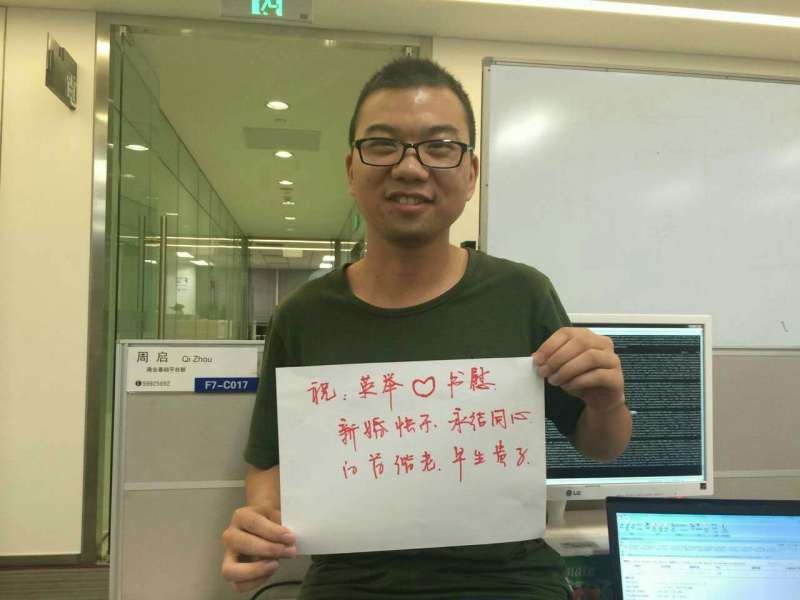 周启 Qi Zhou
商业基础平台部
59925692
F7-C017
祝：英举♡书慰
新婚快乐 永结同心
白首偕老 早生贵子
LG